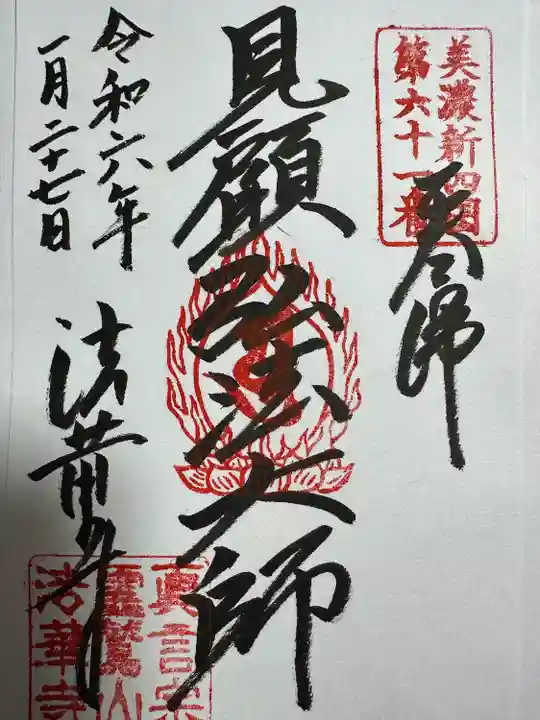 美濃新四国
第六十一番
奉拝
見顧弘法大師
令和六年
一月二十七日
法華寺
真言宗
靈鷲山
法華寺